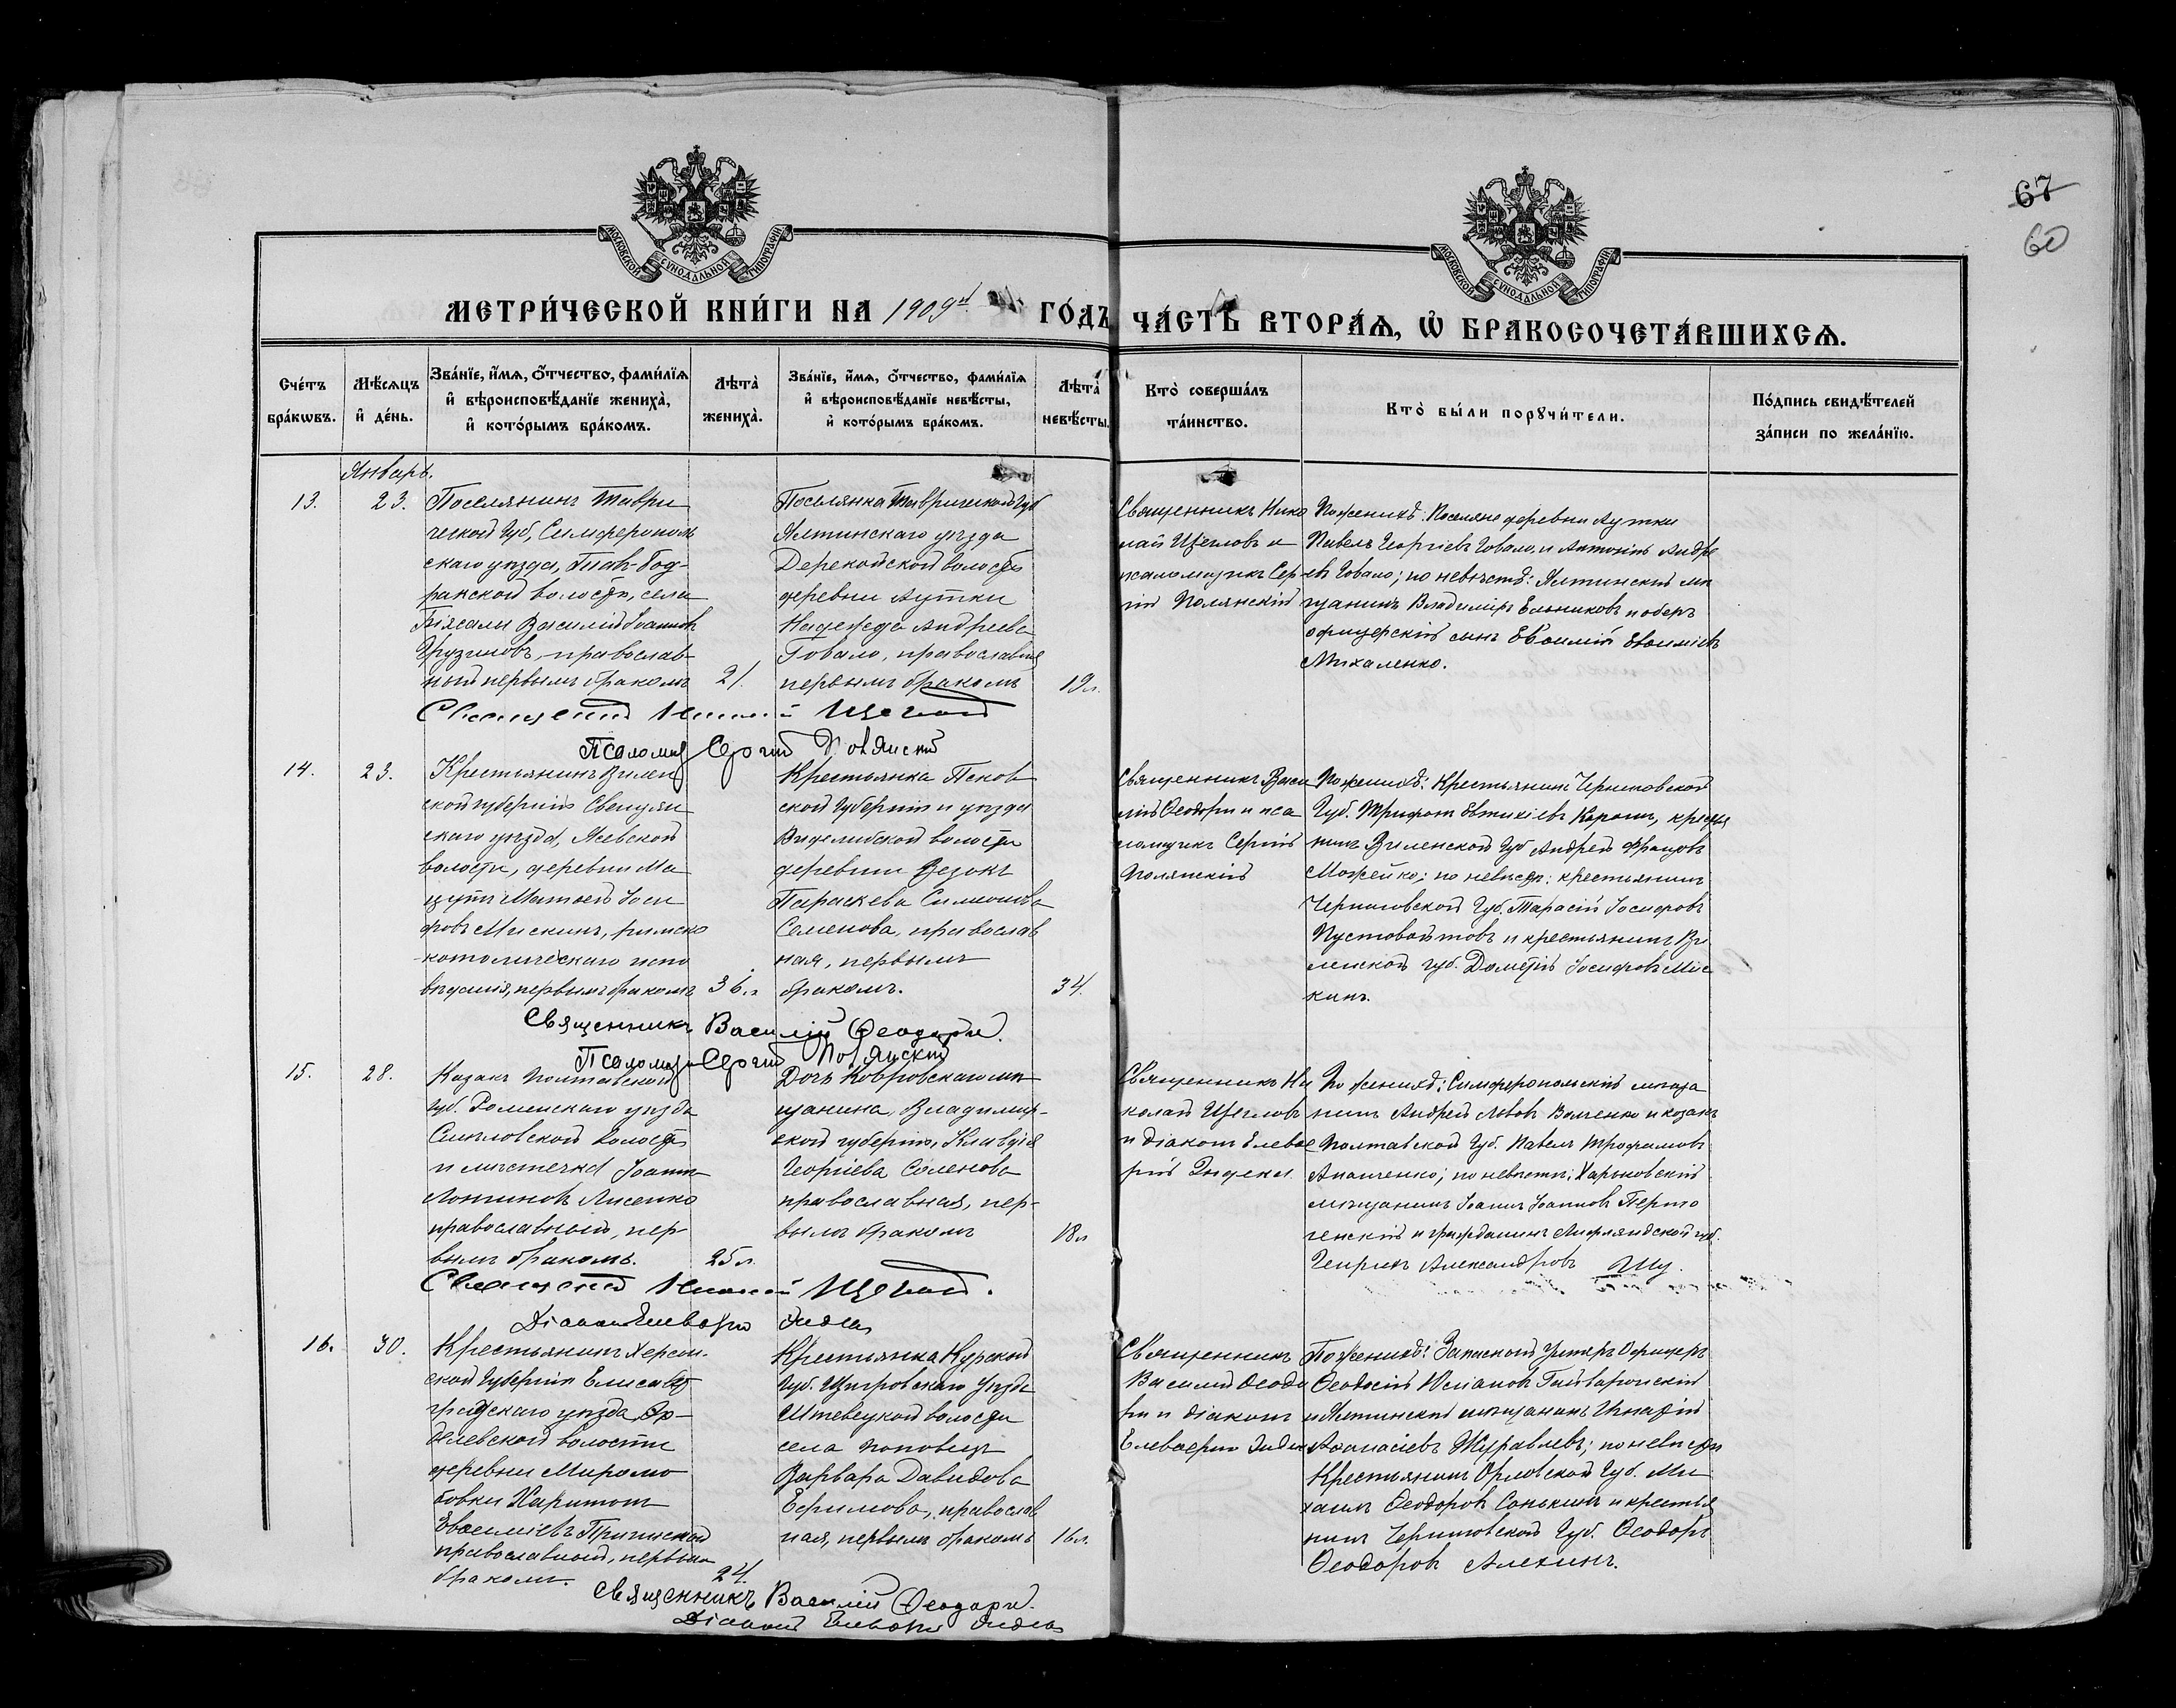 67
60
МОСКОВСКОЙ СѴНОДАЛЬНОЙ ТИПОГРАФІИ
МОСКОВСКОЙ СѴНОДАЛЬНОЙ ТИПОГРАФІИ
МЕТРИ́ЧЕСКОЙ КНИ́ГИ НА 1909й ГО́ДЪ ЧА́СТЬ ВТОРА́Ѧ, Ѡ҆ БРАКОСОЧЕТА́ВШИХСѦ.
Сче́тъ
бра́кѡвъ.
Мѣ́сѧцъ
и҆ де́нь.
Зва́нїе, и҆́мѧ, ѻ҆́тчество, фами́лїѧ
и҆ вѣроисповѣ́данїе жениха̀,
и҆ кото́рымъ бра́комъ.
Лѣта̀
жениха̀.
Зва́нїе, и҆́мѧ, ѻ҆́тчество, фами́лїѧ
и҆ вѣроисповѣ́данїе невѣ́сты,
и҆ кото́рымъ бра́комъ.
Лѣта̀
невѣ́сты.
Кто̀ соверша́лъ
та́инство.
Кто̀ бы́ли порꙋчи́тели.
По́дпись свидѣ́телей
за́писи по жела́нїю.
Январь.
13.
23.
Поселянинъ Таври
ческой Губ, Симферополь
скаго уѣзда,
ракской волости, села
Біясали Василій Іоанновъ
Грузиновъ, православ
ный первымъ бракомъ
21.
Поселянка Таврической Губ
Ялтинскаго уѣзда
Дерекойской волости
деревни Аутки
Надежда Андреева
Говало, православная
первымъ бракомъ
19 л.
Священникъ Нико
лай Щегловъ и
псаломщикъ Сер
гій Полянскій
По женихѣ: Поселяне деревни Аутки
Павелъ Георгіевъ Говало, и Антоній Андре
евъ Говало; по невѣстѣ: Ялтинскій мѣ
щанинъ Владиміръ Ельниковъ и оберъ
офицерскій сынъ Евѳимій Евѳиміевъ
Михаленко.
Священникъ Николай Щегловъ
Псаломщ. Сергій Полянскій
14.
23.
Крестьянинъ Вилен
ской губерніи Свенцян
скаго уѣзда, Ясевской
волости, деревни Ма
Матвей Іоси
фовъ Мискинъ, римско
католическаго испо
вѣданія, первымъ бракомъ
36 л
Крестьянка Псков
ской губерніи и уѣзда
Виделибской волости
деревни Везокъ
Параскева Симеонова
Семенова, православ
ная, первымъ
бракомъ.
34.
Священникъ Васи
лій Ѳеодори и пса
ломщикъ Сергій
Полянскій
По женихѣ: Крестьянинъ Черниговской
Губ. Трифонъ Евтихіевъ крестья
нинъ Виленской Губ Андрей Францовъ
Можейко; по невѣстѣ: крестьянинъ
Черниговской Губ. Тарасій Іосифовъ
Пустовойтовъ и крестьянинъ Ви
ленской губ. Дометій Іосифовъ Мис
кинъ.
Священникъ Василій Ѳеодори.
Псаломщ. Сергій Полянскій
15.
28.
Казакъ Полтавской
Губ. Роменскаго уѣзда
Смѣловской волости
и мѣстечка Іоаннъ
Лонгиновъ Лисенко
православный, пер
вымъ бракомъ.
25 л.
Дочь Ковровскаго мѣ
щанина, Владимір-
ской губерніи, Клавдія
Георгіева Соленова
православная, пер-
вымъ бракомъ
18 л
Священникъ Ни
колай Щегловъ
и діаконъ Елевѳе
рій Эндека
По женихѣ: Симферопольскій мѣща
нинъ Андрей Львовъ Волченко и козакъ
Полтавской Губ. Павелъ Трофимовъ
Апанченко; по невѣстѣ: Харьковскій
мѣщанинъ Іоаннъ Іоанновъ
и гражданинъ Лифляндской губ.
Генрихъ Александровъ
Священникъ Николай Щегловъ.
Діаконъ Елевѳерій
16.
30.
Крестьянинъ Херсон-
ской Губерніи Елисавет
градскаго уѣзда
волости
деревни Миролю
бовки Харитонъ
Евѳиміевъ
православный, первымъ
бракомъ.
24.
Крестьянка Курской
Губ. Щигровскаго Уѣзда
волости
села Поповки
Варвара Давидова
Ефимова, православ
ная, первымъ бракомъ
16 л.
Священникъ
Василій Ѳеодо
ри и діаконъ
Елевѳерій
По женихѣ: Запасной Унтеръ Офицеръ
Ѳеодосій
и Ялтинскій мѣщанинъ Игнатій
Аѳанасіевъ Журавлевъ; по невѣстѣ
Крестьянинъ Орловской Губ. Ми
хаилъ Ѳеодоровъ Сонькинъ и крестья
нинъ Черниговской Губ. Ѳеодоръ
Ѳеодоровъ Алехинъ.
Священникъ Василій Ѳеодори.
Діаконъ Елевѳерій